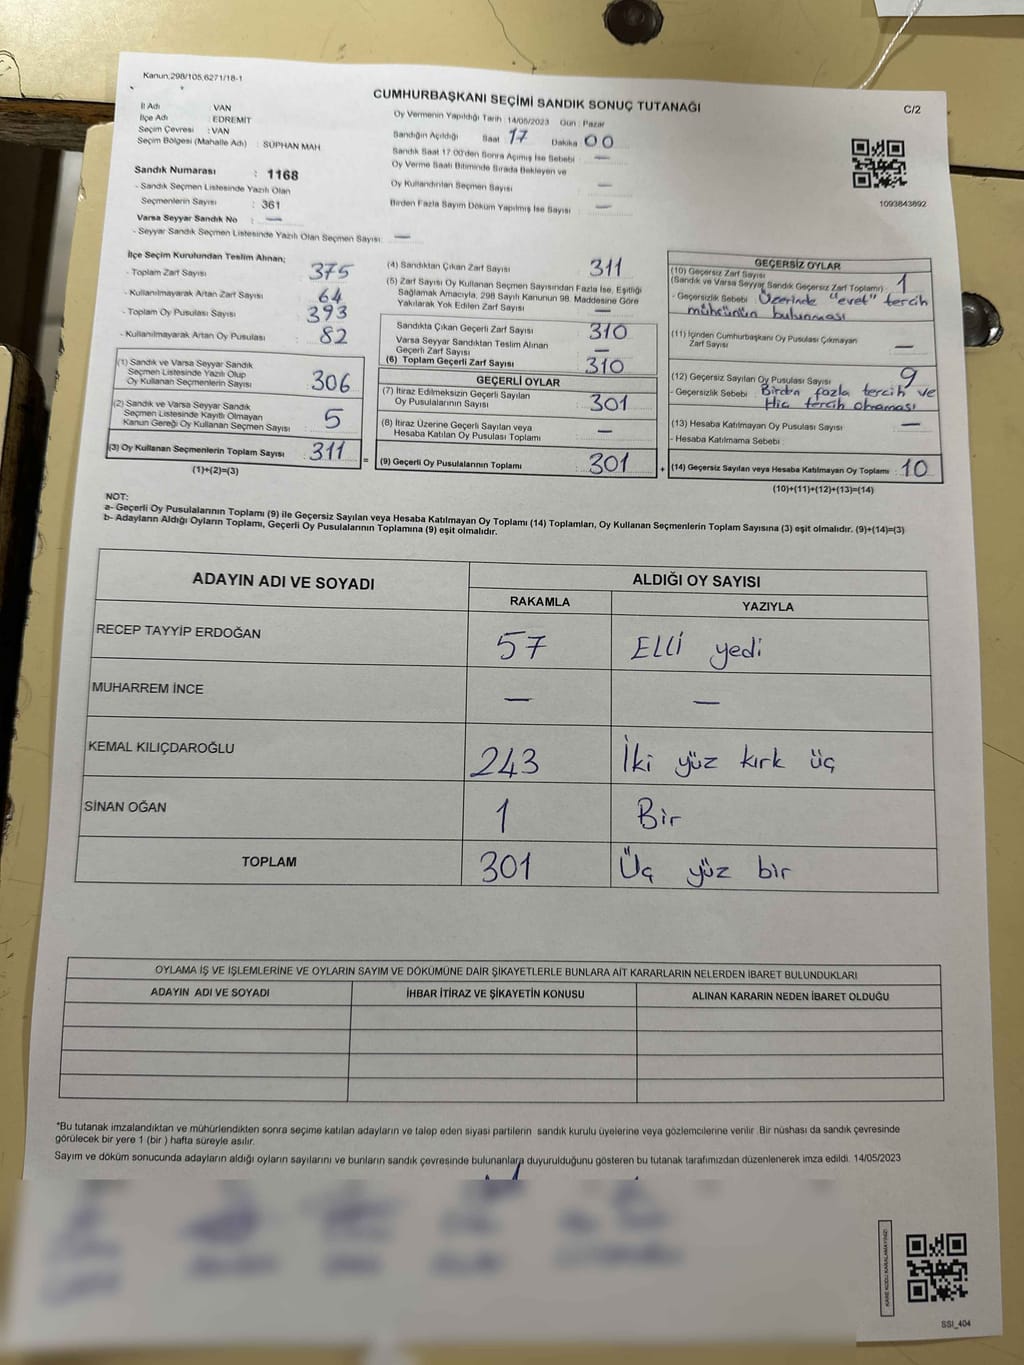 Kanun;298/105,6271/18-1
CUMHURBAŞKANI SEÇİMİ SANDIK SONUÇ TUTANAĞI
C/2
İl Adı VAN
İlçe Adı EDREMİT
Seçim Çevresi : VAN
Seçim Bölgesi (Mahalle Adı) : SÜPHAN MAH
Sandık Numarası : 1168
- Sandık Seçmen Listesinde Yazılı Olan
Seçmenlerin Sayısı : 361
Varsa Seyyar Sandık No : —
- Seyyar Sandık Seçmen Listesinde Yazılı Olan Seçmen Sayısı: —
Oy Vermenin Yapıldığı Tarih : 14/05/2023 Gün : Pazar
Sandığın Açıldığı Saat 17 Dakika 00
Sandık Saat 17:00'den Sonra Açımış İse Sebebi —
Oy Verme Saati Bitiminde Sırada Bekleyen ve
Oy Kullandırılan Seçmen Sayısı —
Birden Fazla Sayım Döküm Yapılmış İse Sayısı —
1093843692
İlçe Seçim Kurulundan Teslim Alınan;
- Toplam Zarf Sayısı 375
- Kullanılmayarak Artan Zarf Sayısı 64
- Toplam Oy Pusulası Sayısı 393
- Kullanılmayarak Artan Oy Pusulası 82
(1) Sandık ve Varsa Seyyar Sandık
Seçmen Listesinde Yazılı Olup
Oy Kullanan Seçmenlerin Sayısı 306
(2) Sandık ve Varsa Seyyar Sandık
Seçmen Listesinde Kayıtlı Olmayan
Kanun Gereği Oy Kullanan Seçmen Sayısı 5
(3) Oy Kullanan Seçmenlerin Toplam Sayısı 311 =
(1)+(2)=(3)
(4) Sandıktan Çıkan Zarf Sayısı 311
(5) Zarf Sayısı Oy Kullanan Seçmen Sayısından Fazla İse, Eşitliği
Sağlamak Amacıyla, 298 Sayılı Kanunun 98. Maddesine Göre
Yakılarak Yok Edilen Zarf Sayısı —
Sandıkta Çıkan Geçerli Zarf Sayısı 310
Varsa Seyyar Sandıktan Teslim Alınan
Geçerli Zarf Sayısı —
(6) Toplam Geçerli Zarf Sayısı 310
GEÇERLİ OYLAR
(7) İtiraz Edilmeksizin Geçerli Sayılan
Oy Pusulalarının Sayısı 301
(8) İtiraz Üzerine Geçerli Sayılan veya
Hesaba Katılan Oy Pusulası Toplamı —
(9) Geçerli Oy Pusulalarının Toplamı 301 +
GEÇERSİZ OYLAR
(10) Geçersiz Zarf Sayısı
(Sandık ve Varsa Seyyar Sandık Geçersiz Zarf Toplamı) 1
- Geçersizlik Sebebi Üzerinde "evet" tercih
mühürünün bulunması
(11) İçinden Cumhurbaşkanı Oy Pusulası Çıkmayan
Zarf Sayısı —
(12) Geçersiz Sayılan Oy Pusulası Sayısı 9
- Geçersizlik Sebebi : Birden fazla tercih ve
Hiç tercih olmaması
(13) Hesaba Katılmayan Oy Pusulası Sayısı —
- Hesaba Katılmama Sebebi
(14) Geçersiz Sayılan veya Hesaba Katılmayan Oy Toplamı : 10
(10)+(11)+(12)+(13)=(14)
NOT:
a- Geçerli Oy Pusulalarının Toplamı (9) ile Geçersiz Sayılan veya Hesaba Katılmayan Oy Toplamı (14) Toplamları, Oy Kullanan Seçmenlerin Toplam Sayısına (3) eşit olmalıdır. (9)+(14)=(3)
b- Adayların Aldığı Oyların Toplamı, Geçerli Oy Pusulalarının Toplamına (9) eşit olmalıdır.
ADAYIN ADI VE SOYADI ALDIĞI OY SAYISI
RAKAMLA YAZIYLA
RECEP TAYYİP ERDOĞAN 57 ELLİ yedi
MUHARREM İNCE — —
KEMAL KILIÇDAROĞLU 243 İki yüz kırk üç
SİNAN OĞAN 1 Bir
TOPLAM 301 Üç yüz bir
OYLAMA İŞ VE İŞLEMLERİNE VE OYLARIN SAYIM VE DÖKÜMÜNE DAİR ŞİKAYETLERLE BUNLARA AİT KARARLARIN NELERDEN İBARET BULUNDUKLARI
ADAYIN ADI VE SOYADI İHBAR İTİRAZ VE ŞİKAYETİN KONUSU ALINAN KARARIN NEDEN İBARET OLDUĞU
*Bu tutanak imzalandıktan ve mühürlendikten sonra seçime katılan adayların ve talep eden siyasi partilerin sandık kurulu üyelerine veya gözlemcilerine verilir. Bir nüshası da sandık çevresinde
görülecek bir yere 1 (bir ) hafta süreyle asılır.
Sayım ve döküm sonucunda adayların aldığı oyların sayılarını ve bunların sandık çevresinde bulunanlara duyurulduğunu gösteren bu tutanak tarafımızdan düzenlenerek imza edildi. 14/05/2023
KARE KODU KARALAMAYINIZ!
SSI_404